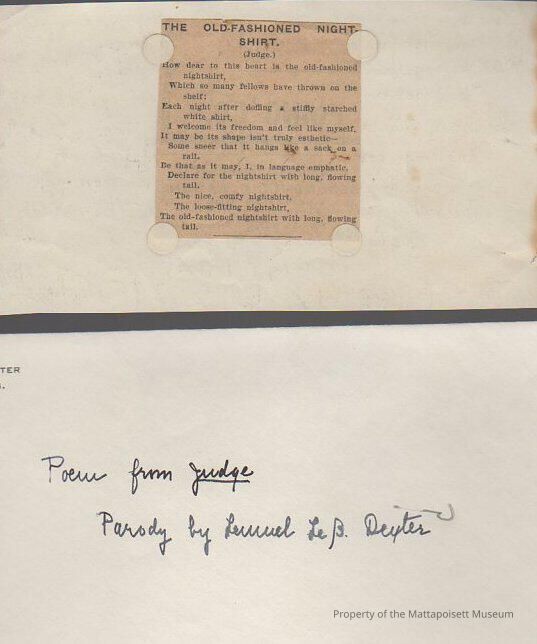 THE OLD-FASHIONED NIGHT-
SHIRT.
(Judge.)
How dear to this heart is the old-fashioned
nightshirt,
Which so many fellows have thrown on the
shelf;
Each night after doffing a stiffly starched
white shirt,
I welcome its freedom and feel like myself.
It may be its shape isn't truly esthetic—
Some sneer that it hangs like a sack on a
rail.
Be that as it may, I, in language emphatic,
Declare for the nightshirt with long, flowing
tail.
The nice, comfy nightshirt,
The loose-fitting nightshirt,
The old-fashioned nightshirt with long, flowing
tail.
TER
Poem from Judge
Parody by Lemuel Le B. Dexter
Property of the Mattapoisett Museum